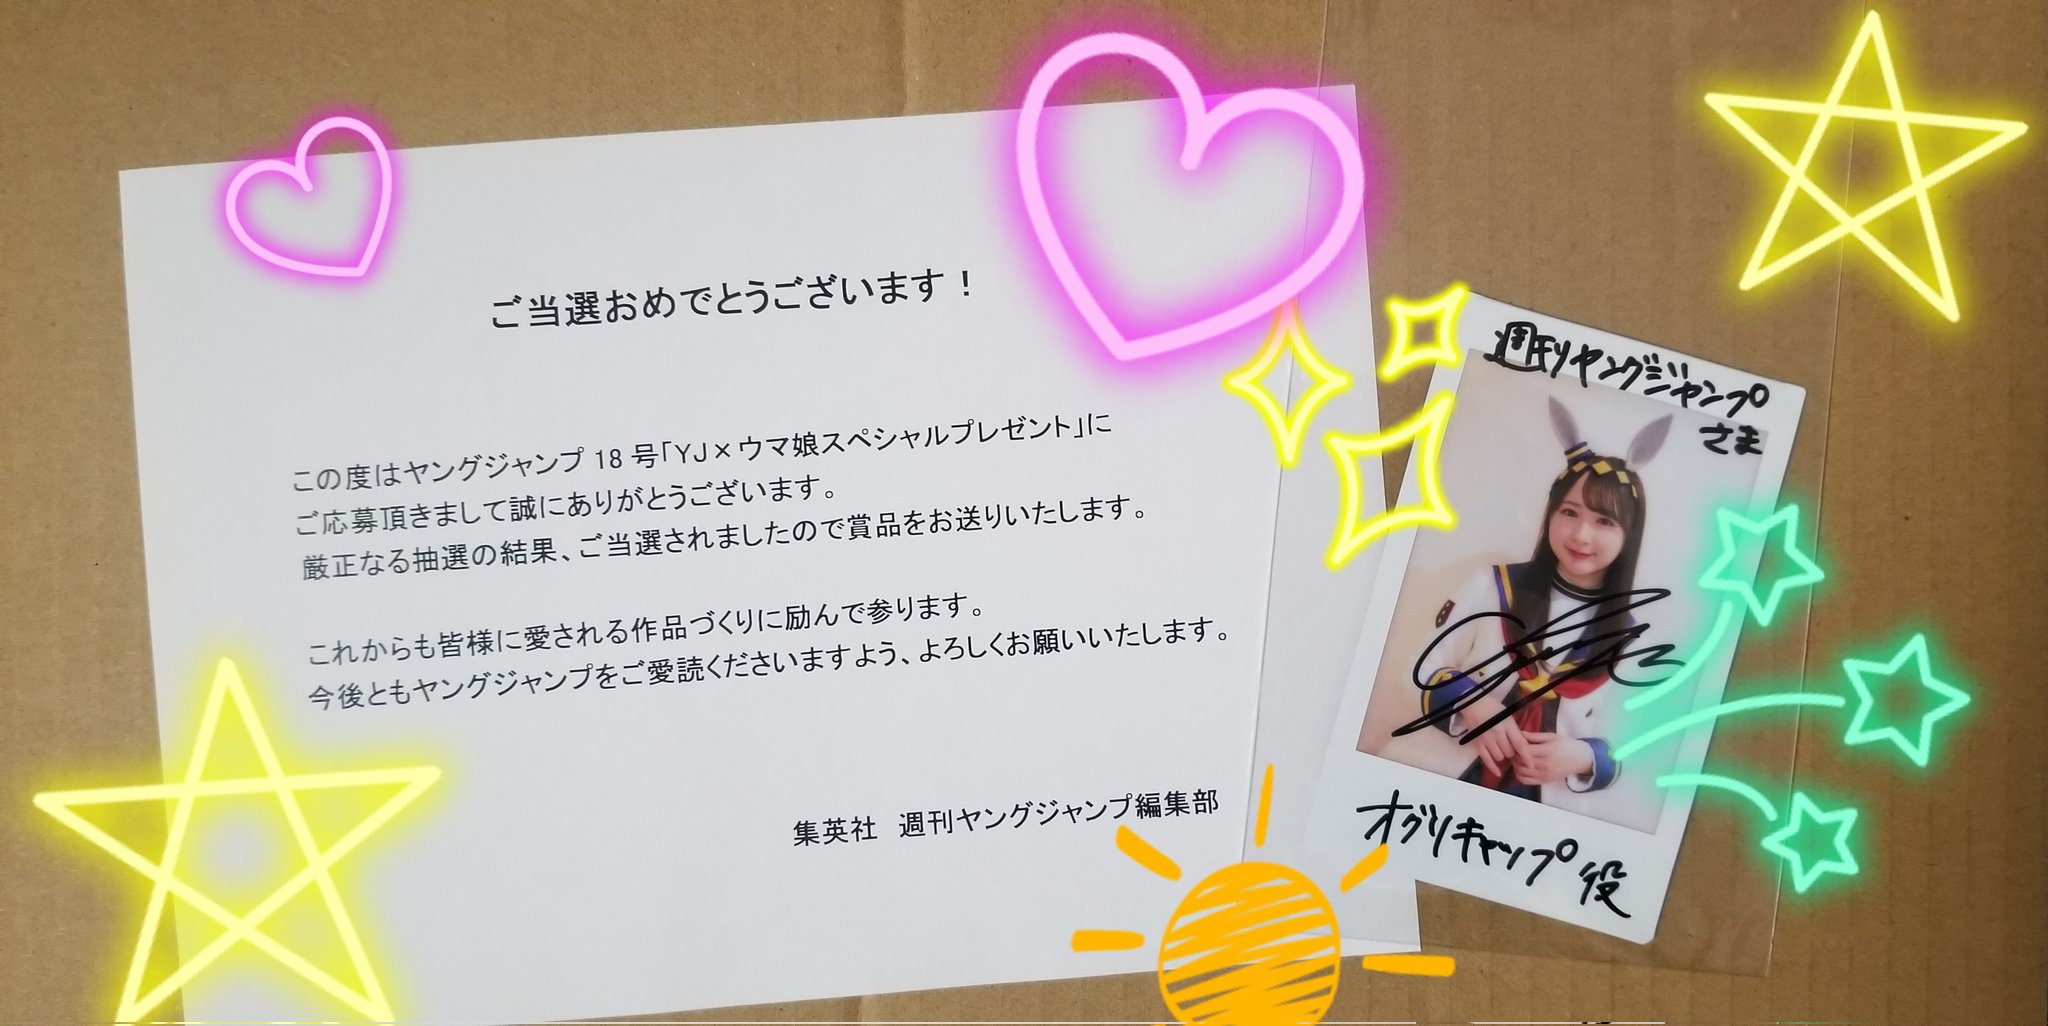 ご当選おめでとうございます！
この度はヤングジャンプ 18 号「YJ×ウマ娘スペシャルプレゼント」に
ご応募頂きまして誠にありがとうございます。
厳正なる抽選の結果、ご当選されましたので賞品をお送りいたします。
これからも皆様に愛される作品づくりに励んで参ります。
今後ともヤングジャンプをご愛読くださいますよう、よろしくお願いいたします。
集英社　週刊ヤングジャンプ編集部
週刊ヤングジャンプ
さま
オグリキャップ役